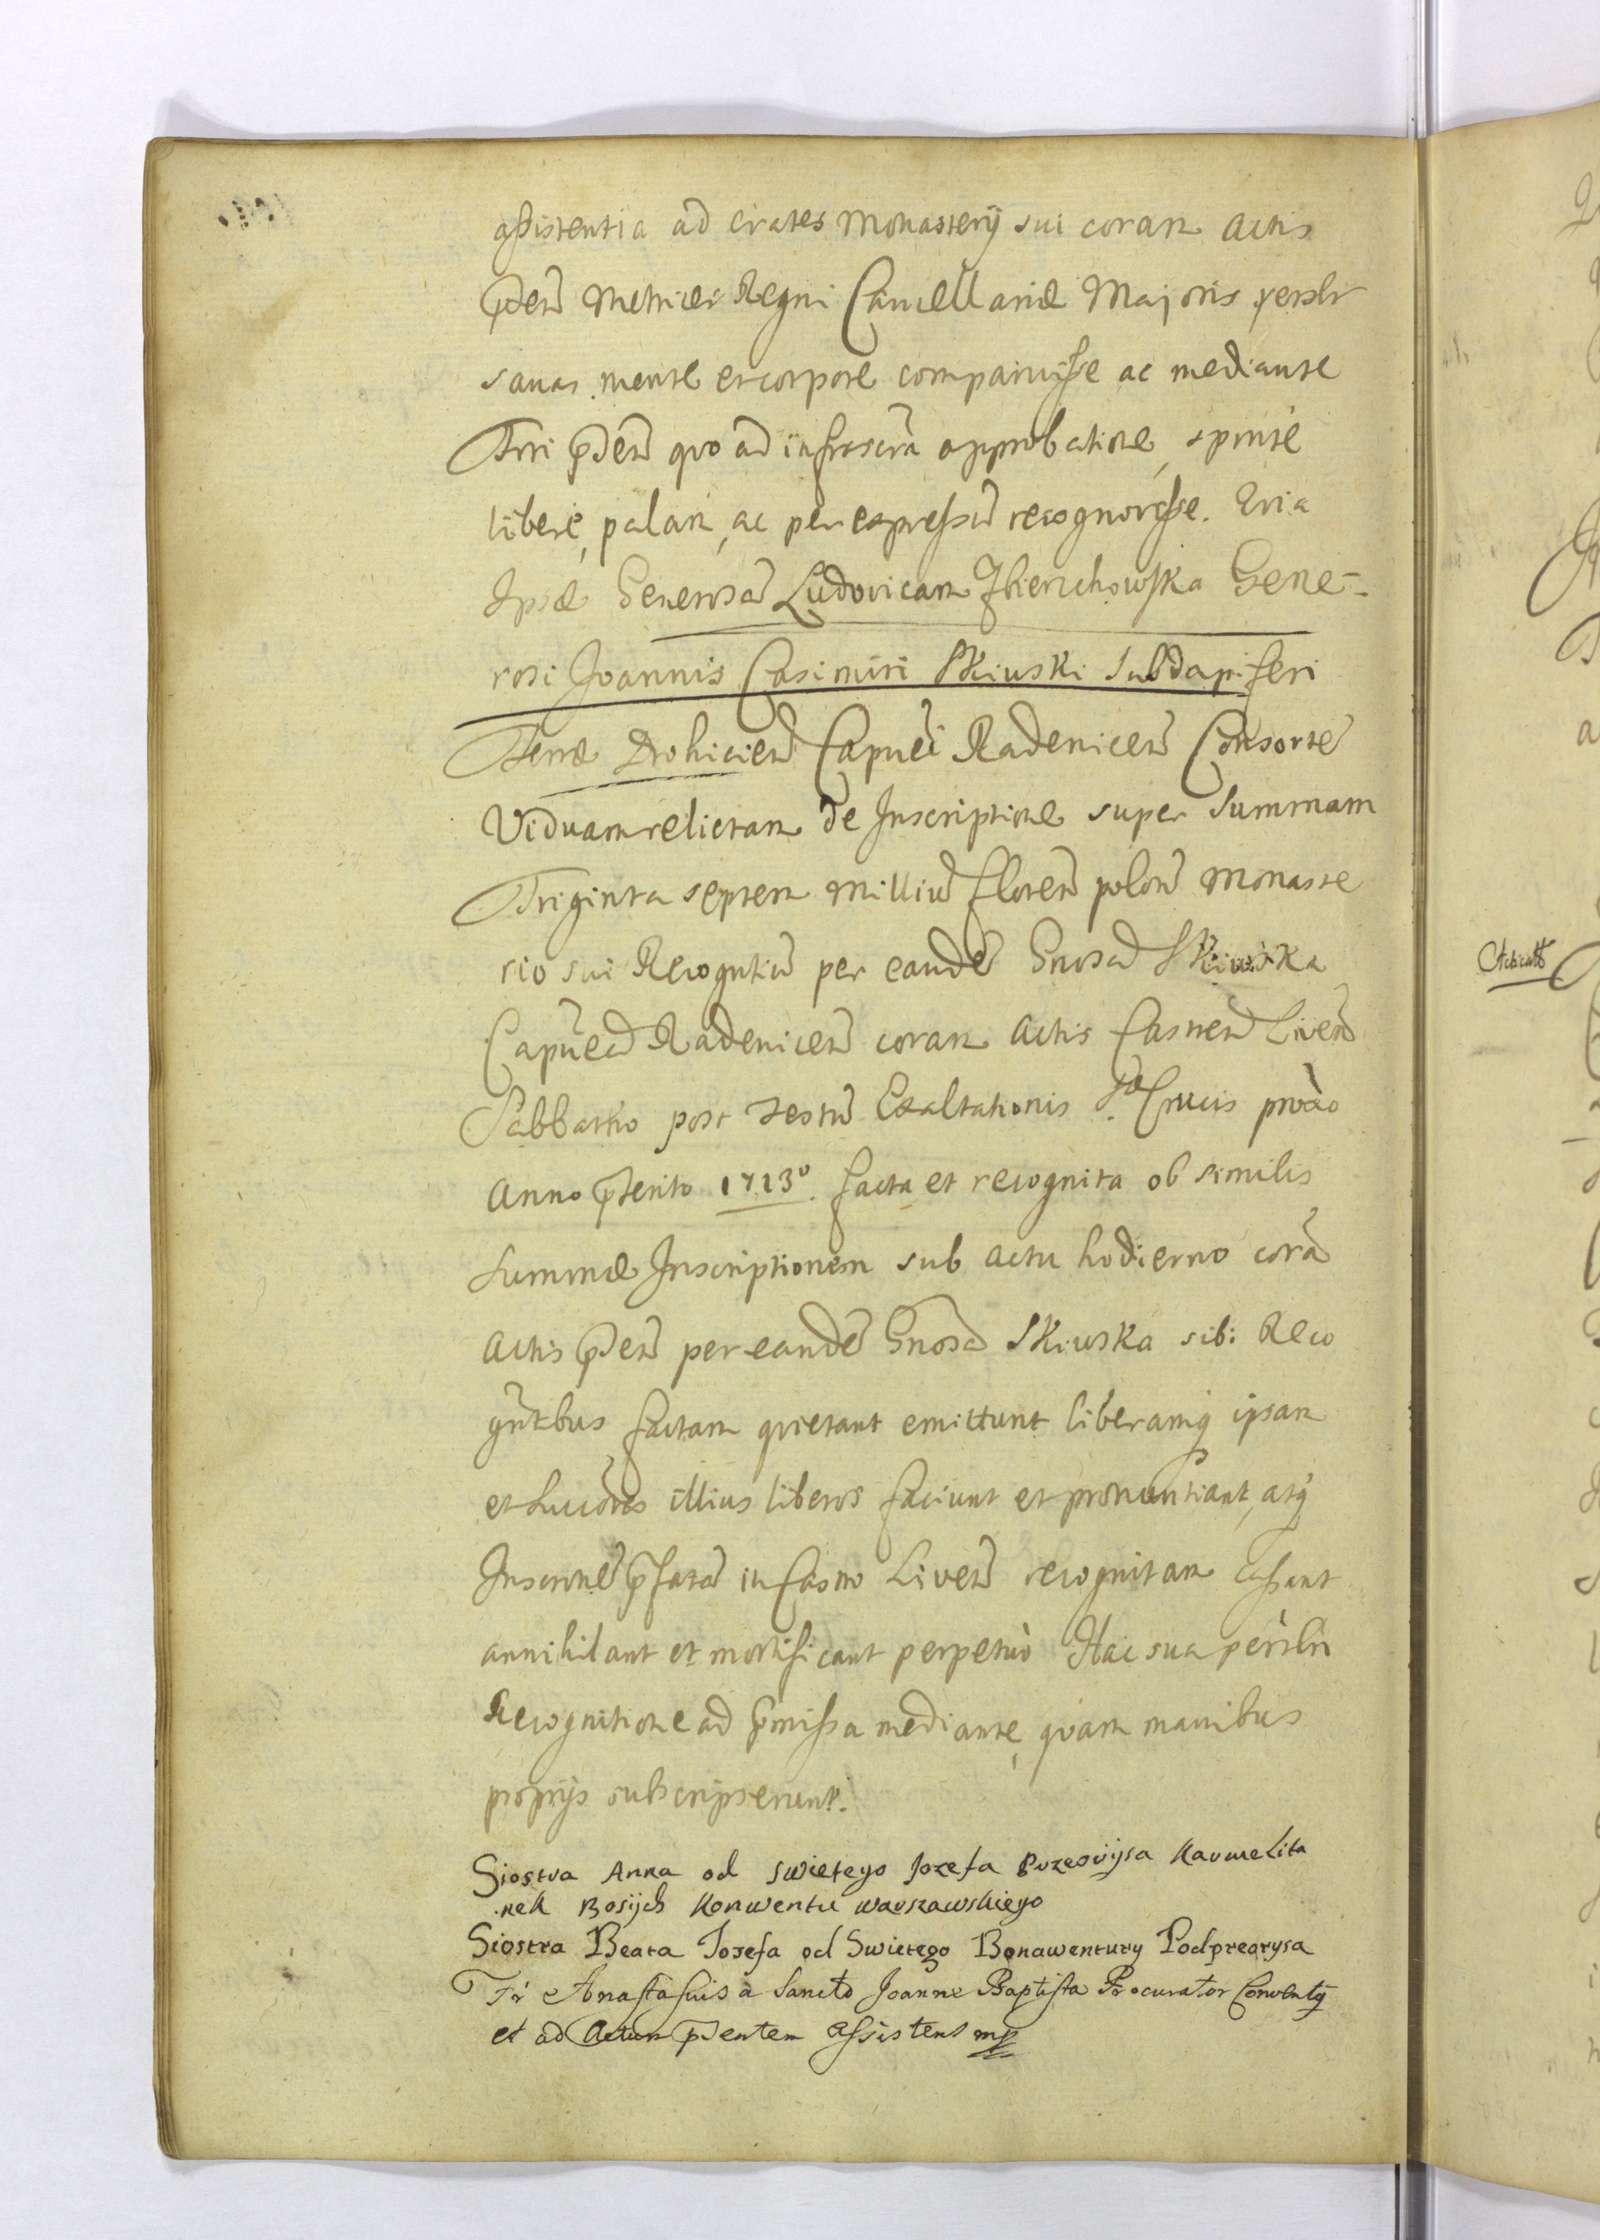 assistentia ad crates Monasterÿ sui coram Actis
p̃ntib̃ Metrices Regni Cancellariæ Majoris personlr
sanas mente et corpore comparuisse ac mediante
Ittri p̃ntis quo ad infrascrã approbatione, sponte
libere, palam, ac per expressũ recognovisse. Quia
Ipsæ Generosã Ludovicam Zbierzchowska Gene-
rosi Joannis Casimiri Skiwski Subdapiferi
Terræ Drohicien̄ Capnei Radenicen̄ Consorte
Viduam relictam de Inscriptione super Summam
Triginta septem Milliũ floren̄ polon̄ Monaste
rio sui Recogntiũ per eandẽ Gnosã Skiwska
Capneã Radenicen̄ coram Actis Castren̄ Liven̄
Sabbatho post Festũ Exaltationis S. Crucis proxo
Anno p̃terito 1713º. facta et recognita ob similis
Summæ Inscriptionem sub actu hodierno corã
Actis p̃ntib̃ per eandẽ Gnosã Skiwska sibi Reco
gñtibus factam quietant emittunt liberamq̃ ipsam
et Succõres illius liberos faciunt et pronuntiant, atq̃
Inscrõnẽ p̃fatã in Castro Liven̄ recognitam cassant
annihilant et mortificant perpetuò Hac sua persnlri
Recognitione ad p̃missa mediante, quam manibus
proprÿs subscripserunt.
Siostra Anna od swietego Jozefa Przeoryjsa Karmelita
nek Bosijch Konwentu warszawskiego
Siostra Beata Josefa od Swietego Bonawentury Podpreorysa
Fr̃ Anastasius à Sancto Joanne Baptista Procurator Conventq̃
et ad Actum p̃sentem assistens mp